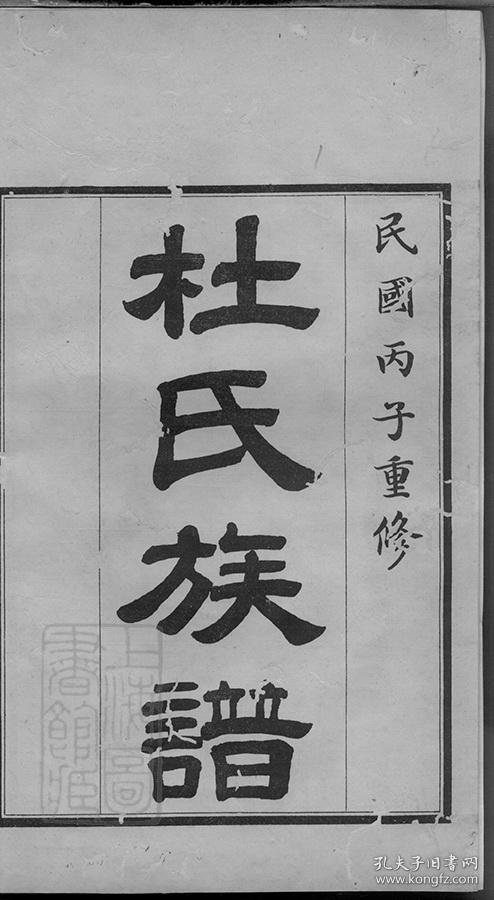 民國丙子重修
杜氏族譜
上海圖
書館藏
孔夫子旧书网
www.kongfz.com